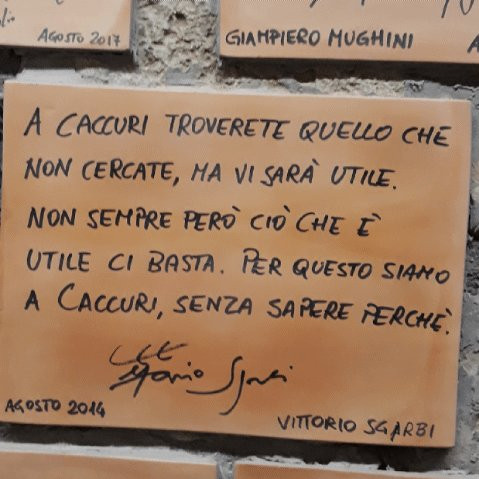 AGOSTO 2017
GIAMPIERO MUGHINI
A CACCURI TROVERETE QUELLO CHE
NON CERCATE, MA VI SARÀ UTILE.
NON SEMPRE PERÒ CIÒ CHE È
UTILE CI BASTA. PER QUESTO SIAMO
A CACCURI, SENZA SAPERE PERCHÈ.
AGOSTO 2014
VITTORIO SGARBI